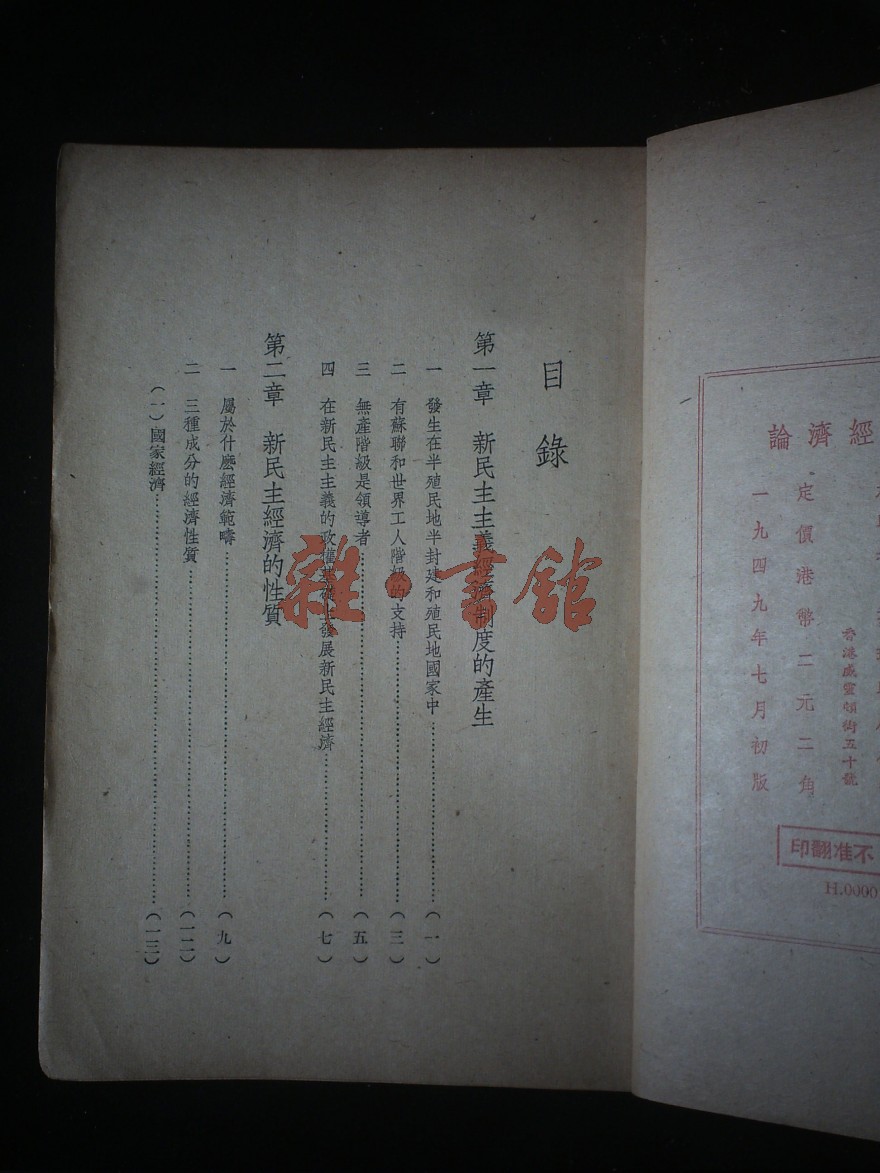 目錄
第一章 新民主主義經濟制度的產生
一 發生在半殖民地半封建和殖民地國家中……(一)
二 有蘇聯和世界工人階級的支持……(三)
三 無產階級是領導者……(五)
四 在新民主主義的政權基礎上發展新民主經濟……(七)
第二章 新民主經濟的性質
一 屬於什麼經濟範疇……(九)
二 三種成分的經濟性質……(一二)
(一)國家經濟……(一三)
雜·書館
論濟經
香港威靈頓街五十號
定價港幣二元二角
一九四九年七月初版
印翻准不
H.0000